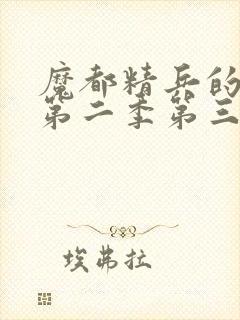 魔都精兵的
第二季第三
埃弗拉